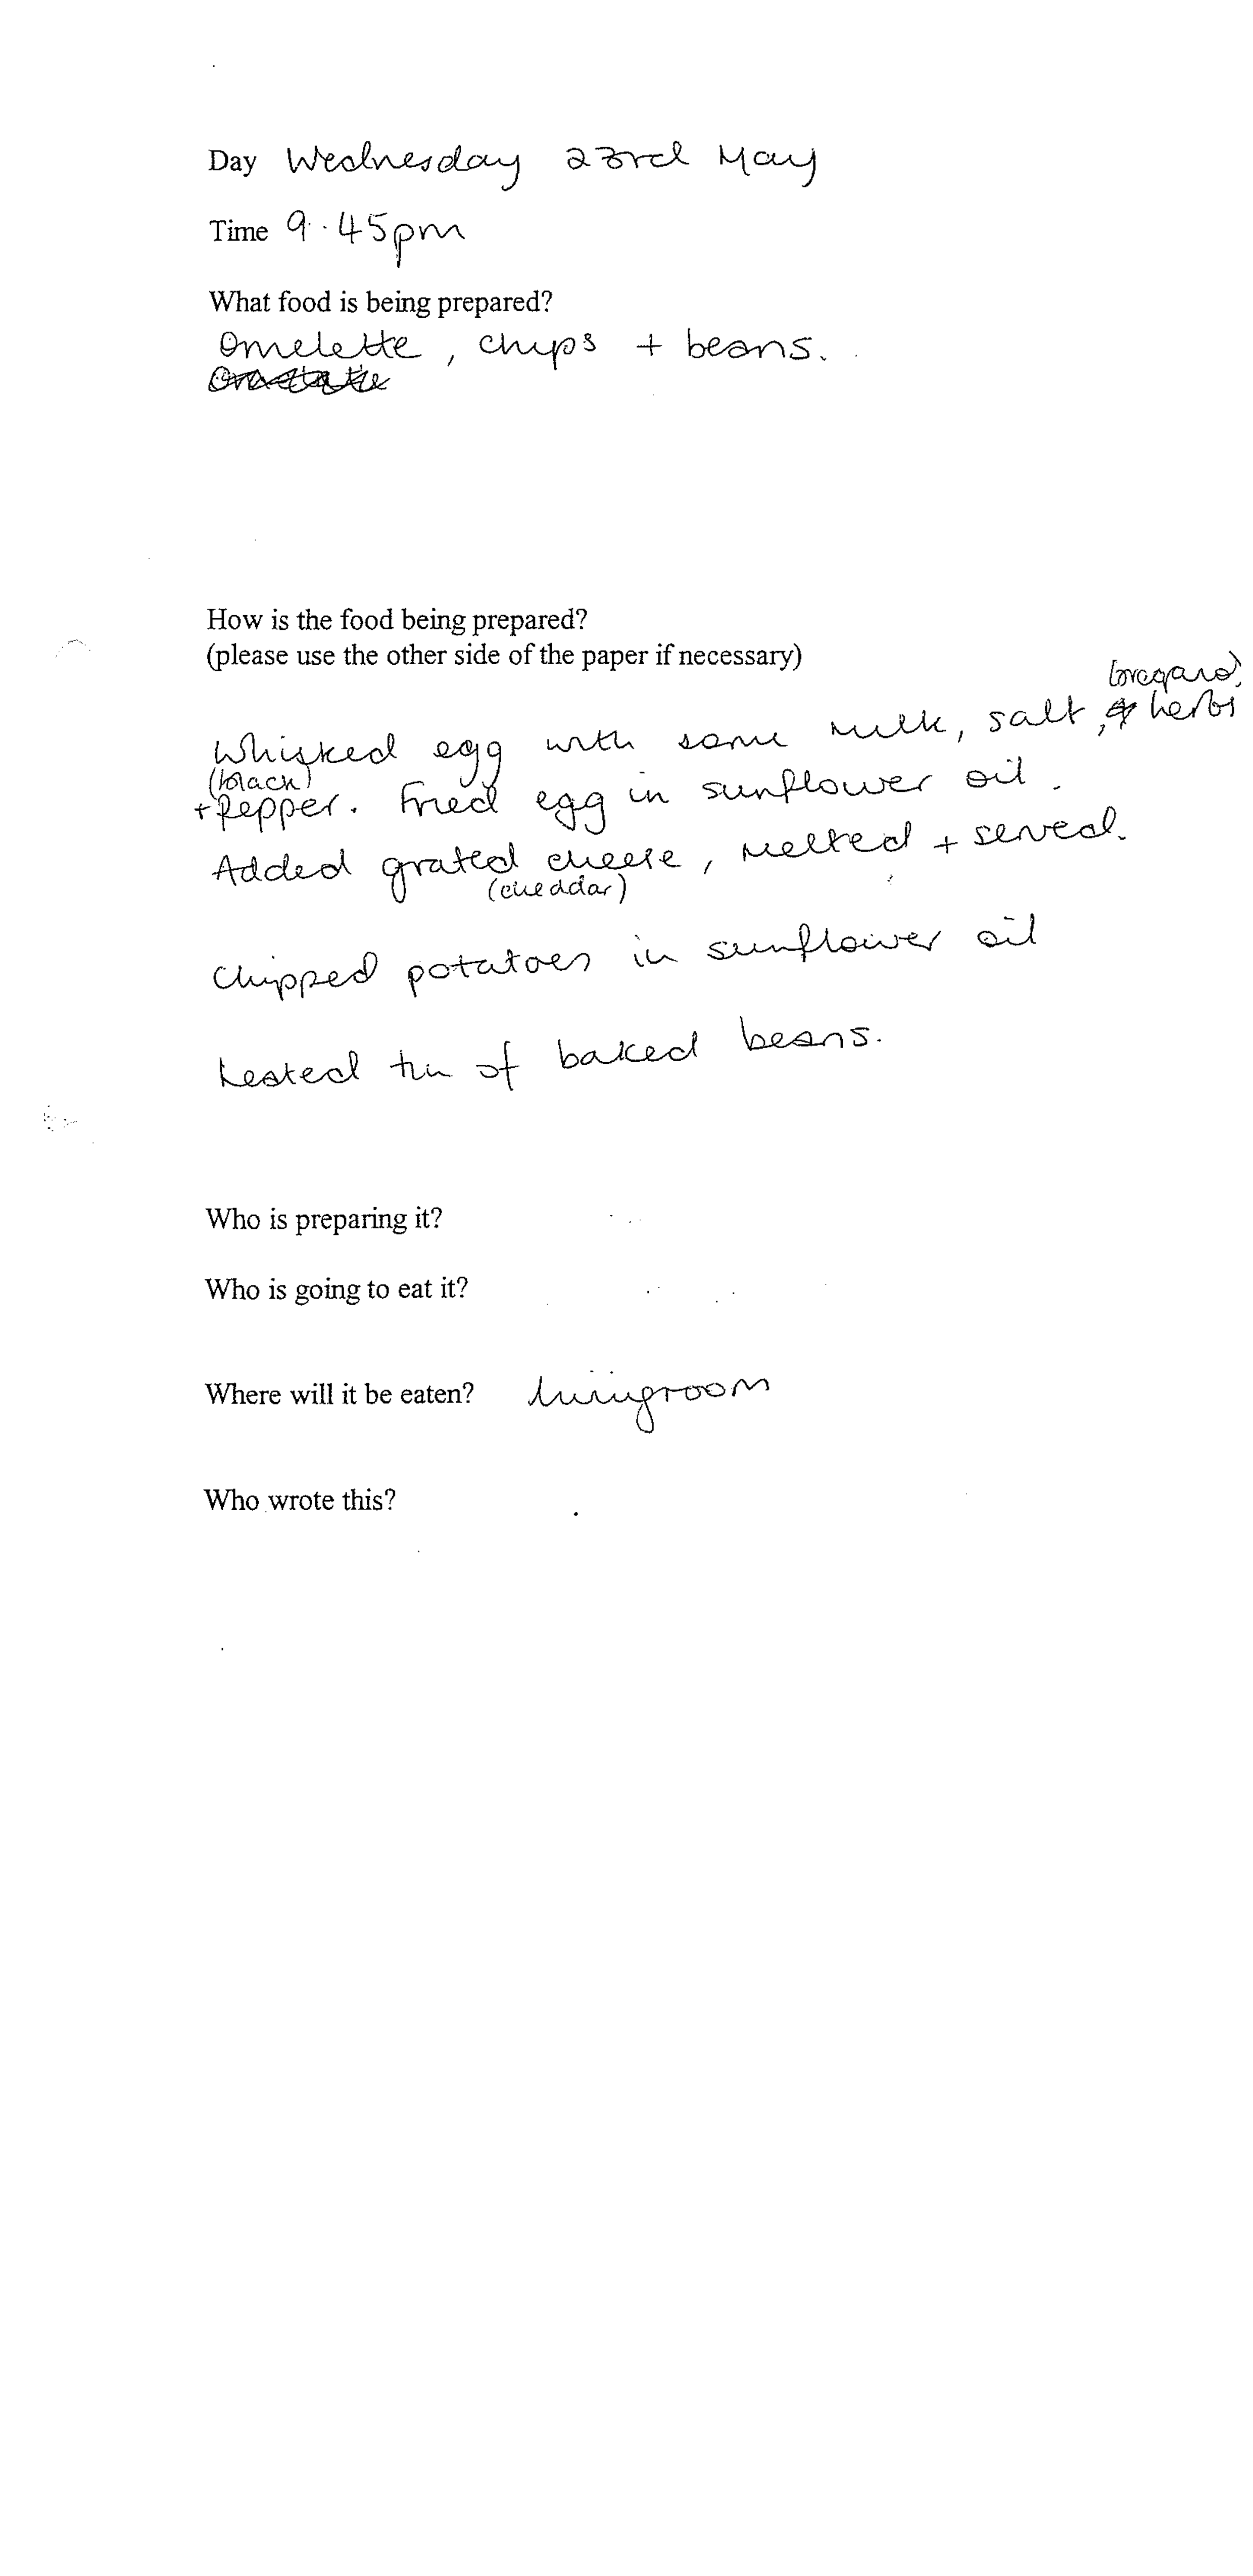 Day Wednesday 23rd May
Time 9.45pm
What food is being prepared?
Omelette, chips + beans.
How is the food being prepared?
(please use the other side of the paper if necessary)
(oregano)
Whisked egg with some milk, salt, herbs
(black)
+ Pepper. Fried egg in sunflower oil.
Added grated cheese, melted + served.
(cheddar)
Chipped potatoes in sunflower oil
heated tin of baked beans.
Who is preparing it?
Who is going to eat it?
Where will it be eaten? livingroom
Who wrote this?